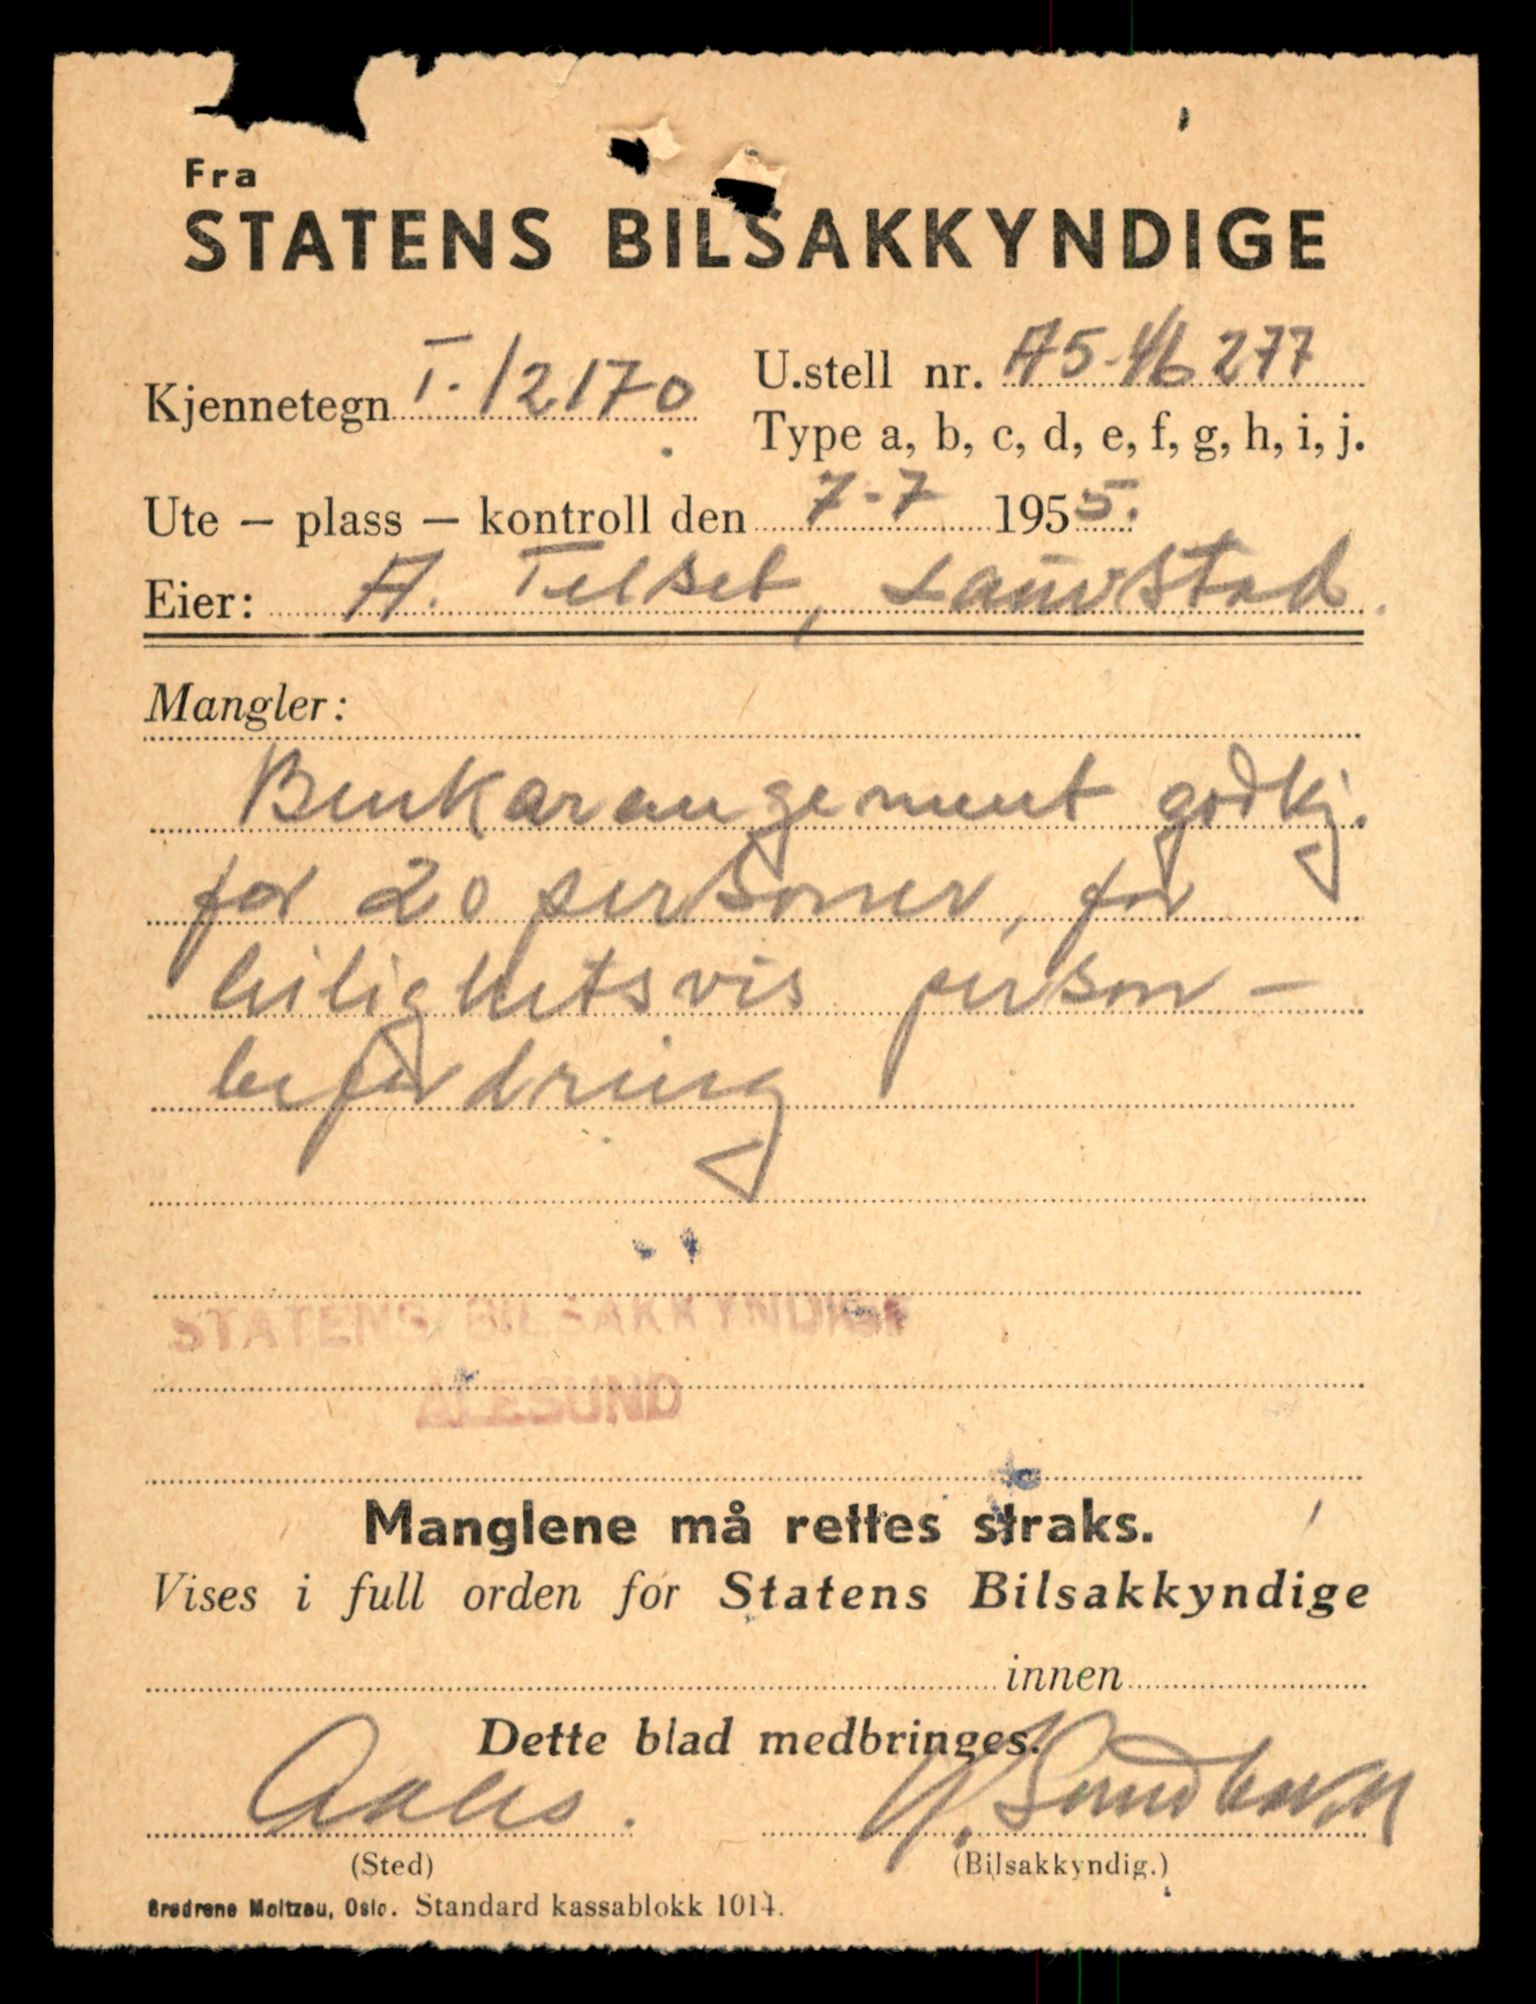 Fra
STATENS BILSAKKYNDIGE
Kjennetegn T-12170
U.stell nr. A5-46277
Type a, b, c, d, e, f, g, h, i, j.
Ute – plass – kontroll den 7-7 1955.
Eier: A. Telset, Lauvstad.
Mangler:
Benkarangement godkj.
for 20 personer, for
leilighetsvis person-
befordring
STATENS BILSAKKYNDIGE
ÅLESUND
Manglene må rettes straks.
Vises i full orden for Statens Bilsakkyndige
innen
Dette blad medbringes.
Aales.
(Sted)
(Bilsakkyndig.)
Brødrene Moltzau, Oslo. Standard kassablokk 1014.